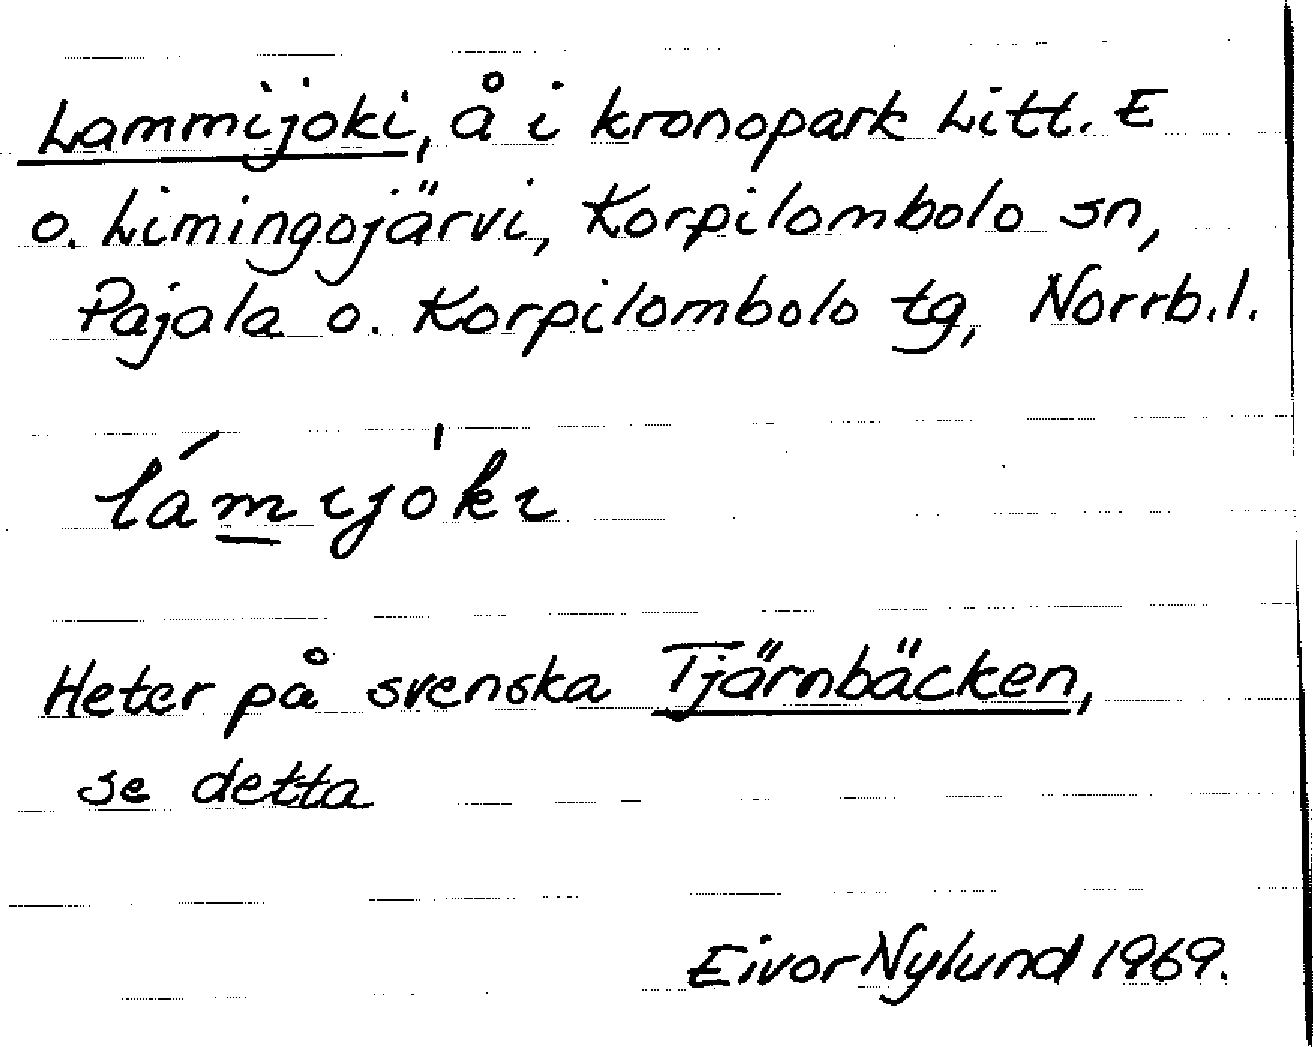 Lammijoki, å i kronopark Litt. E
o. Limingojärvi, Korpilombolo sn,
Pajala o. Korpilombolo tg, Norrb.l.
lámɩjòkɩ
Heter på svenska Tjärnbäcken,
se detta
Eivor Nylund 1969.